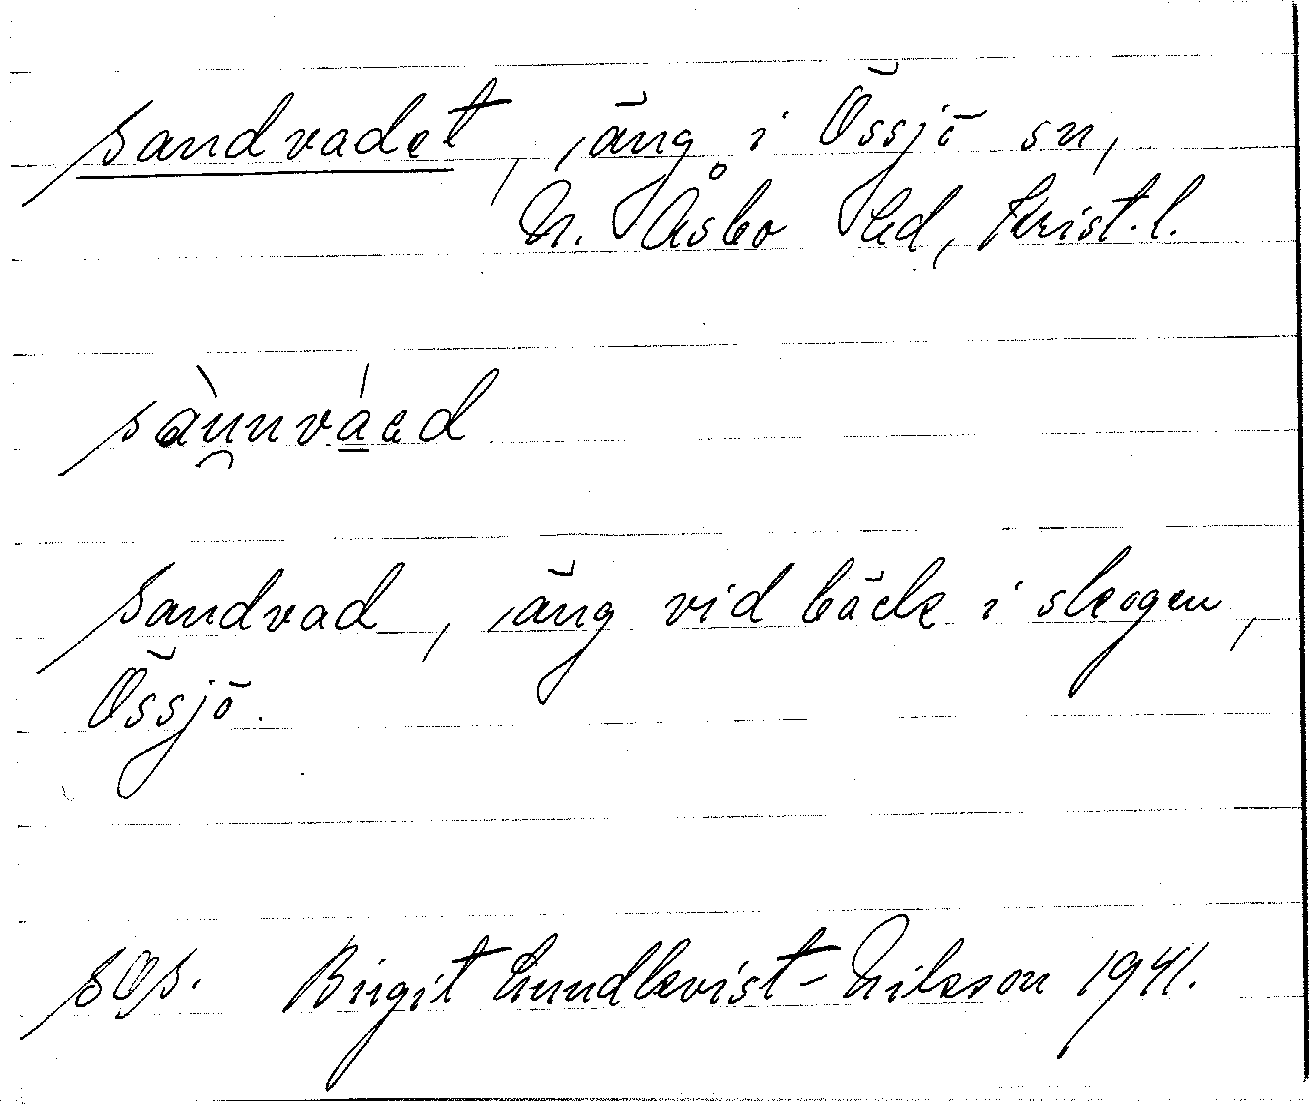 Sandvadet, äng i Össjö sn,
N. Åsbo hd, Krist.l.
sànnváad
Sandvad, äng vid bäck i skogen,
Össjö.
Birgit Lundkvist-Nilsson 1941.